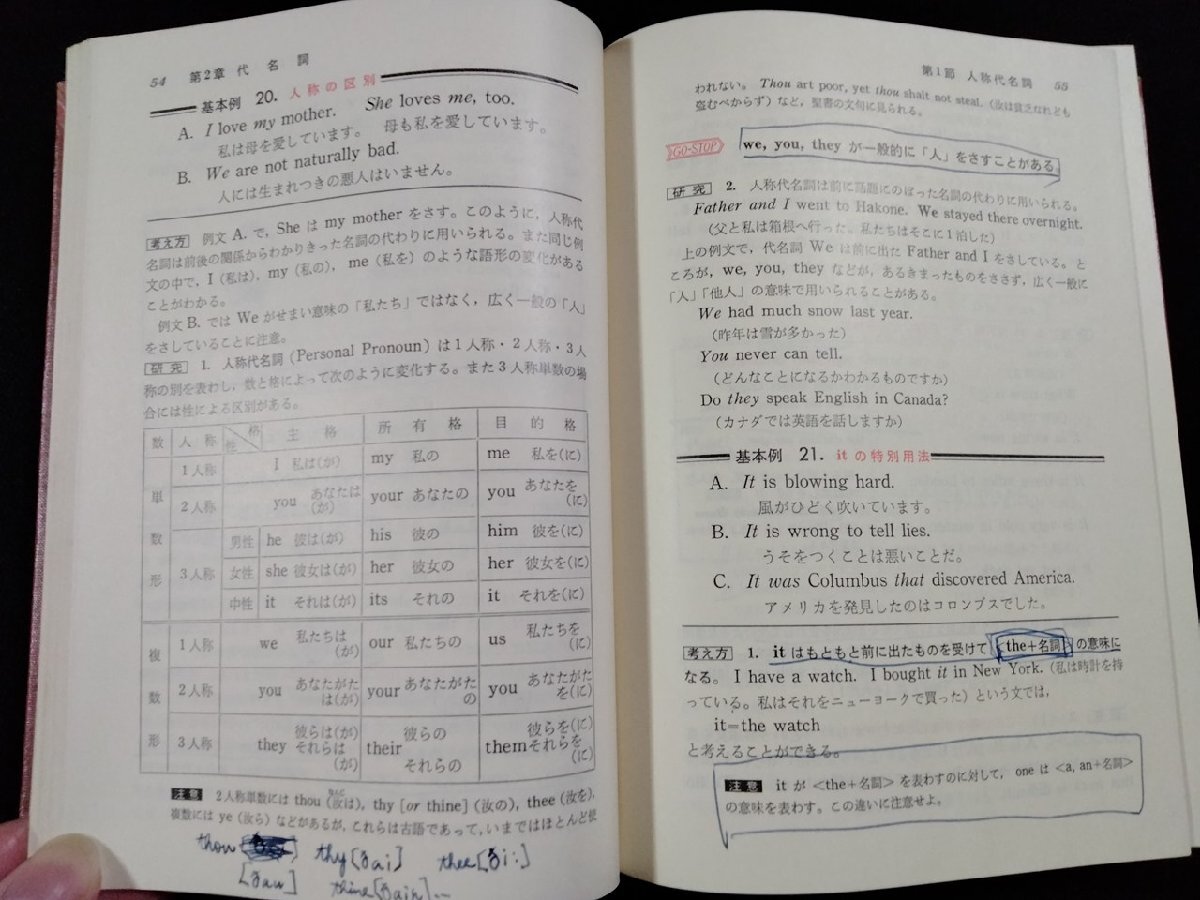 54 第2章 代名詞
基本例 20. 人称の区別
A. I love my mother. She loves me, too.
私は母を愛しています。 母も私を愛しています。
B. We are not naturally bad.
人には生まれつきの悪人はいません。
考え方 例文 A. で, She は my mother をさす。このように, 人称代
名詞は前後の関係からわかりきった名詞の代わりに用いられる。また同じ例
文の中で, I (私は), my (私の), me (私を) のような語形の変化がある
ことがわかる。
例文 B. では We がせまい意味の「私たち」ではなく, 広く一般の「人」
をさしていることに注意。
研究 1. 人称代名詞 (Personal Pronoun) は1人称・2人称・3人
称の別を表わし, 数と格によって次のように変化する。また3人称単数の場
合には性による区別がある。
数 人称 格 性 主格 所有格 目的格
単数形 1人称 I 私は(が) my 私の me 私を(に)
2人称 you あなたは(が) your あなたの you あなたを(に)
3人称 男性 he 彼は(が) his 彼の him 彼を(に)
女性 she 彼女は(が) her 彼女の her 彼女を(に)
中性 it それは(が) its それの it それを(に)
複数形 1人称 we 私たちは(が) our 私たちの us 私たちを(に)
2人称 you あなたがたは(が) your あなたがたの you あなたがたを(に)
3人称 they 彼らは(が) それらは(が) their 彼らの それらの them 彼らを(に) それらを(に)
注意 2人称単数には thou (汝は), thy [or thine] (汝の), thee (汝を),
複数には ye (汝ら) などがあるが, これらは古語であって, いまではほとんど使
thou thy [ðai] thee [ði:]
[ðau] thine [ðain]
第1節 人称代名詞 55
われない。 Thou art poor, yet thou shalt not steal. (汝は貧乏なれども
盗むべからず) など, 聖書の文句に見られる。
GO-STOP we, you, they が一般的に「人」をさすことがある
研究 2. 人称代名詞は前に話題にのぼった名詞の代わりに用いられる。
Father and I went to Hakone. We stayed there overnight.
(父と私は箱根へ行った。私たちはそこに1泊した)
上の例文で, 代名詞 We は前に出た Father and I をさしている。と
ころが, we, you, they などが, あるきまったものをささず, 広く一般に
「人」「他人」の意味で用いられることがある。
We had much snow last year.
(昨年は雪が多かった)
You never can tell.
(どんなことになるかわかるものですか)
Do they speak English in Canada?
(カナダでは英語を話しますか)
基本例 21. it の特別用法
A. It is blowing hard.
風がひどく吹いています。
B. It is wrong to tell lies.
うそをつくことは悪いことだ。
C. It was Columbus that discovered America.
アメリカを発見したのはコロンブスでした。
考え方 1. it はもともと前に出たものを受けて「the+名詞」の意味に
なる。 I have a watch. I bought it in New York. (私は時計を持
っている。私はそれをニューヨークで買った) という文では,
it=the watch
と考えることができる。
注意 it が <the+名詞> を表わすのに対して, one は <a, an+名詞>
の意味を表わす。この違いに注意せよ。